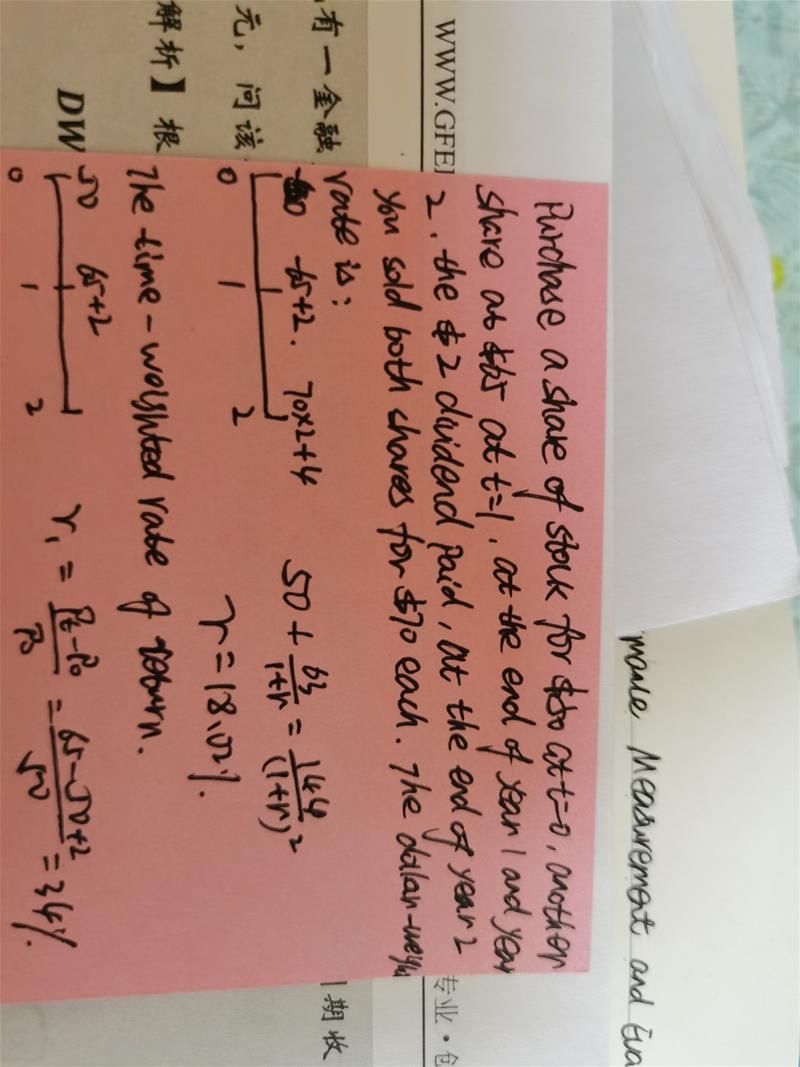 mance Measurement and Eva
Purchase a share of stock for $50 at t=0, another
share at $65 at t=1, at the end of year 1 and year
2, the $2 dividend paid, at the end of year 2
you sold both shares for $70 each. The dollar-weigh
rate is:
-65+2. 70×2+4
0 1 2
50 + 63/(1+r) = 144/(1+r)²
r=18.02%.
The time-weighted rate of return.
50 65+2
0 1 2
r₁ = (Pt-P0)/P0 = (65-50+2)/50 = 34%.
WWW.GFE
专业·创
有一金融
元，问该
期收
解析】根
DW